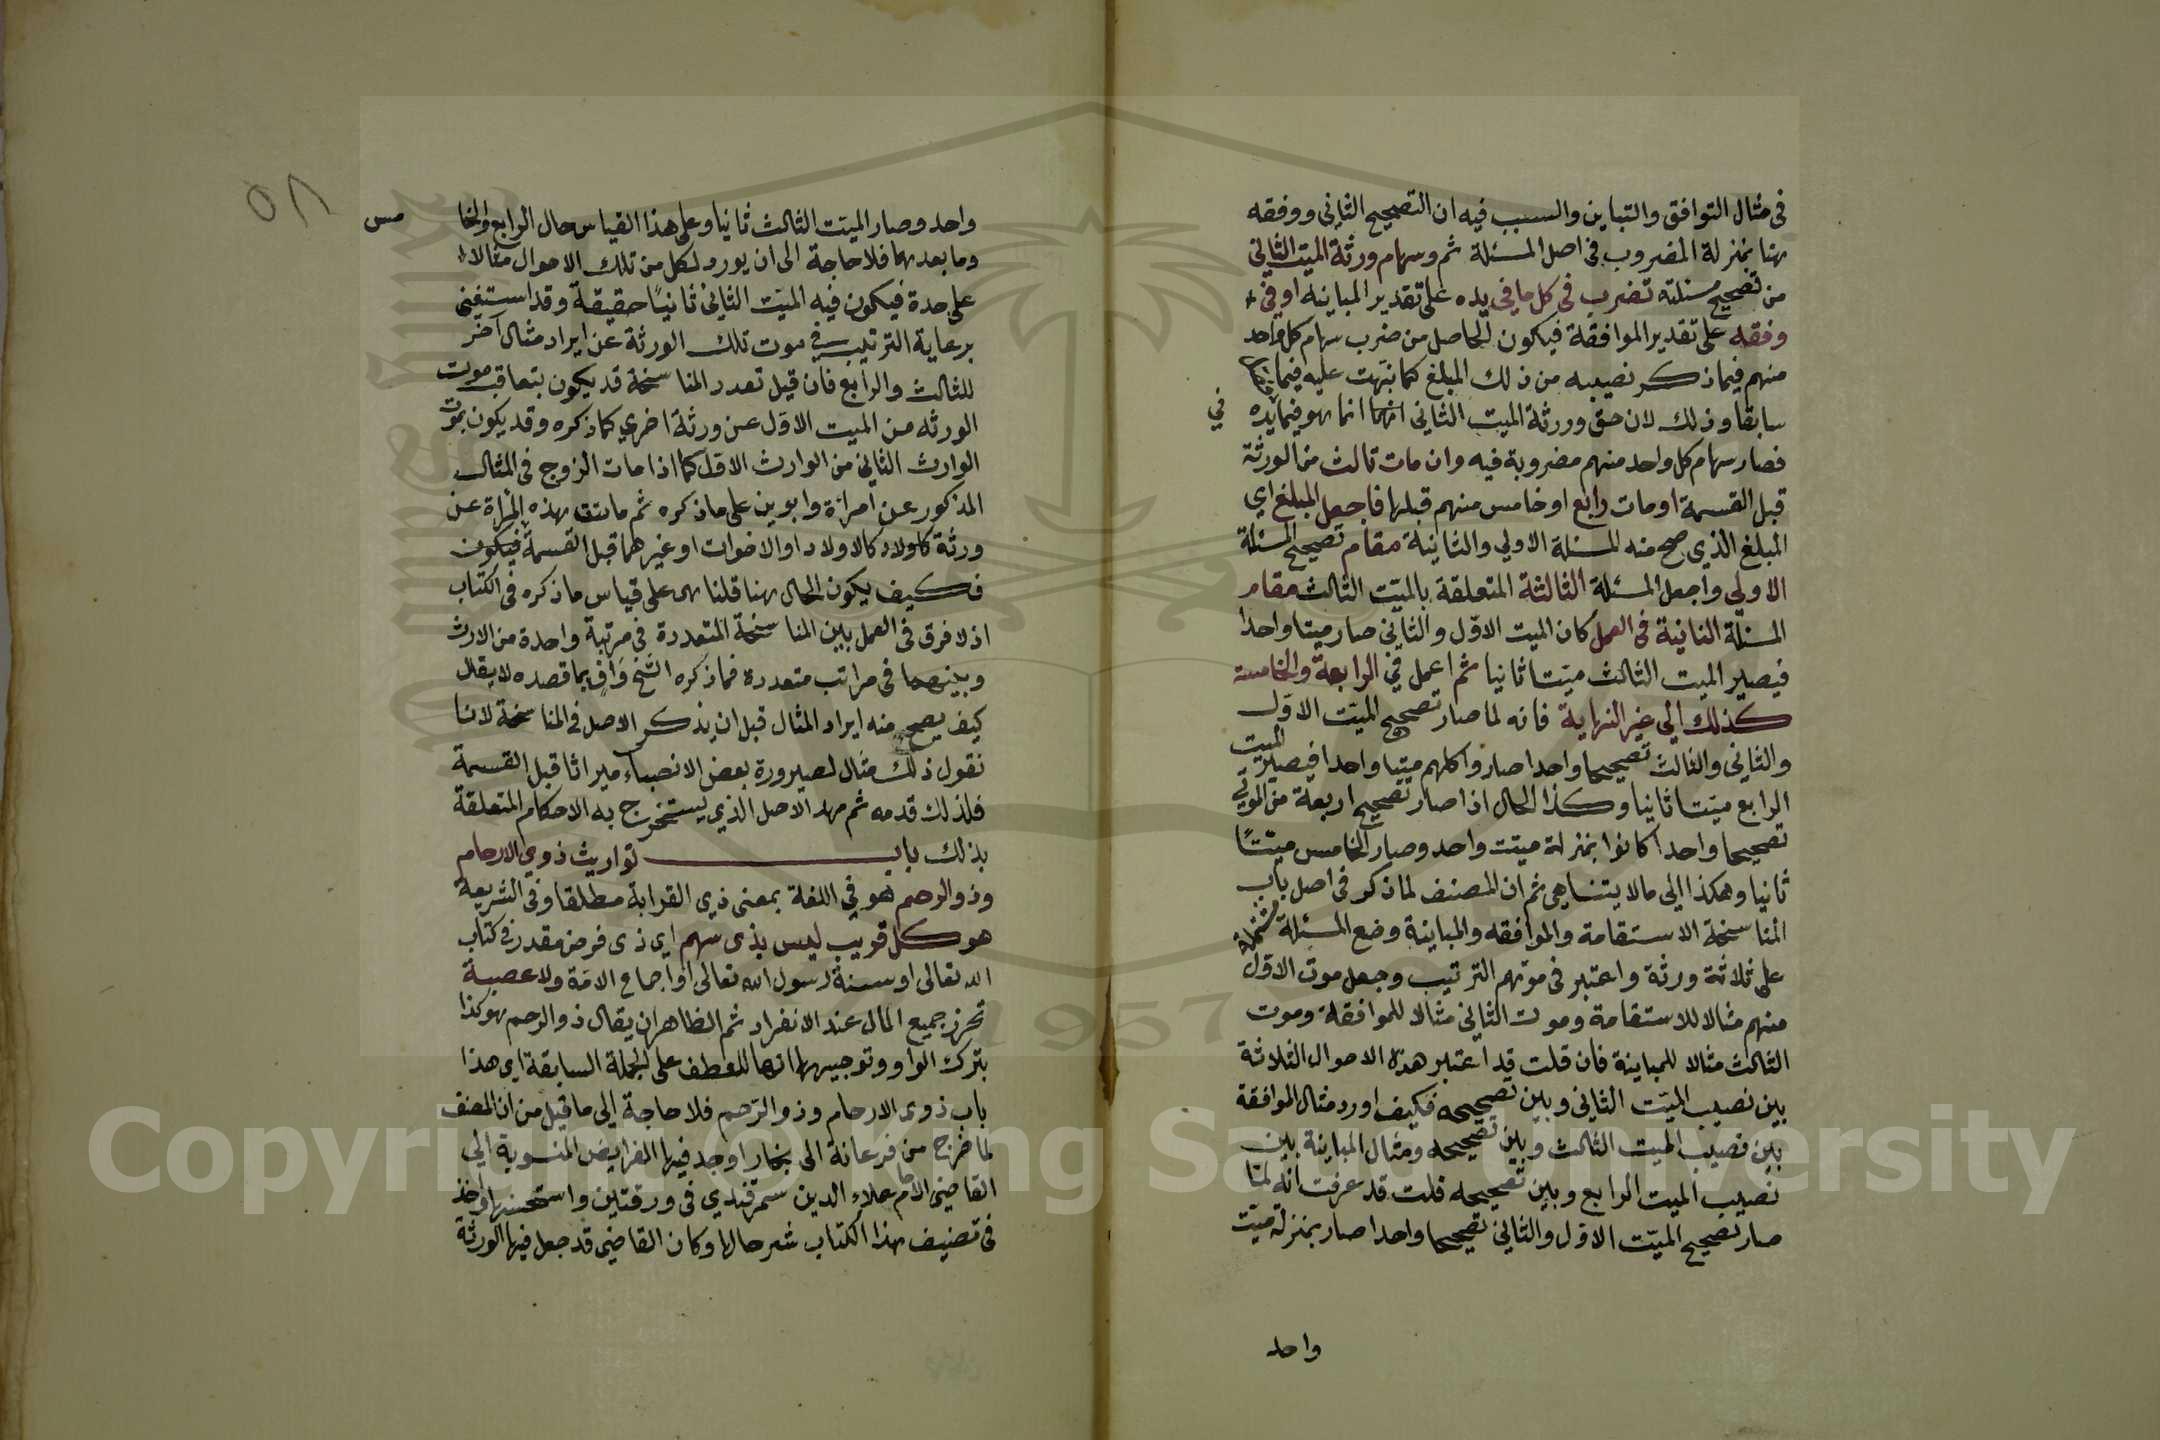 في مثال التوافق والتباين والسبب فيه ان التصحيح الثاني ووفقه
ههنا بمنزلة المضروب في اصل المسئلة ثم وسهام ورثة الميت الثاني
من تصحيح مسئلته تضرب في كل ما في يده على تقدير المباينه او في
وفقه على تقدير الموافقة فيكون الحاصل من ضرب سهام كل واحد
منهم فيما ذكر نصيبه من ذلك المبلغ كما نبهت عليه فيما
سابقا وذلك لان حق وورثة الميت الثاني انما انما هو فيما يده
في
فصار سهام كل واحد منهم مضروبة فيه وان مات ثالث من الورثة
قبل القسمة او مات رابع او خامس منهم قبلها فاجعل المبلغ اي
المبلغ الذي صح منه المسئلة الاولي والثانية مقام تصحيح المسئلة
الاولي واجعل المسئلة الثالثة المتعلقة بالميت الثالث مقام
المسئلة الثانية في العمل كان الميت الاول والثاني صار ميتا واحدا
فيصير الميت الثالث ميتا ثانيا ثم اعمل في الرابعة والخامسة
كذلك الي غير النهاية فانه لما صار تصحيح الميت الاول
والثاني والثالث تصحيحا واحدا صاروا كلهم ميتا واحدا فيصير الميت
الرابع ميتا ثانيا وكذا الحال اذا صار تصحيح اربعة من الموتي
تصحيحا واحدا كانوا بمنزلة ميت واحد وصار الخامس ميتا
ثانيا وهكذا الي مالا يتناهى ثم ان المصنف لما ذكر في اصل باب
المناسخة الاستقامة والموافقه والمباينة وضع المسئلة
على ثلاثة ورثة واعتبر في موتهم الترتيب وجعل موت الاول
منهم مثالا للاستقامة وموت الثاني مثالا للموافقة وموت
الثالث مثالا للمباينة فان قلت قد اعتبر هذه الاحوال الثلاثة
بين نصيب الميت الثاني وبين تصحيحه فكيف اورد مثال الموافقة
بين نصيب الميت الثالث وبين تصحيحه ومثال المباينة بين
نصيب الميت الرابع وبين تصحيحه قلت قد عرفت انه لما
صار تصحيح الميت الاول والثاني تصحيحا واحدا صار بمنزلة ميت
واحد
٥٨
واحد وصار الميت الثالث ثانيا وعلى هذا القياس حال الرابع والخا مس
وما بعدهما فلا حاجة الى ان يورد لكل من تلك الاحوال مثالا
على حدة فيكون فيه الميت الثاني ثانيا حقيقة وقد استغنى
برعاية الترتيب في موت تلك الورثة عن ايراد مثال آخر
للثالث والرابع فان قيل تعدد المناسخة قد يكون بتعاقب موت
الورثه من الميت الاول عن ورثة اخري كما ذكره وقد يكون بموت
الوارث الثاني من الوارث الاول كما اذا مات الزوج في المثال
المذكور عن امرأة وابوين على ما ذكره ثم ماتت هذه المرأة عن
ورثة كاولاد كالاولاد او الاخوات او غيرهما قبل القسمة فيكون
فكيف يكون الحال ههنا قلنا هى على قياس ما ذكره في الكتاب
اذ لا فرق في العمل بين المناسخة المتعددة في مرتبة واحدة من الارث
وبينهما في مراتب متعددة فما ذكره الشيخ واف بما قصده لا يقال
كيف يصح منه ايراد المثال قبل ان يذكر الاصل في المناسخة لانا
نقول ذلك مثال لصيرورة بعض الانصباء ميراثا قبل القسمة
فلذلك قدمه ثم مهد الاصل الذي يستخرج به الاحكام المتعلقة
بذلك باب توارث ذوي الارحام
وذو الرحم هو في اللغة بمعنى ذي القرابة مطلقا وفي الشريعة
هو كل قريب ليس بذي سهم اي ذي فرض مقدر في كتاب
الله تعالى او سنة رسول الله تعالى او اجماع الامة ولا عصبة
تحرز جميع المال عند الانفراد ثم الظاهر ان يقال ذو الرحم هو كذا
بترك الواو وتوجيهها انها للعطف على الجملة السابقة اي هذا
باب ذوى الارحام وذو الرحم فلا حاجة الي ما قيل من ان المصنف
لما خرج من فرغانة الى بخارا وجد فيها الفرايض المنسوبة الي
القاضي الامام علاء الدين سمرقندي في ورقتين واستحسنها واخذ
في تصنيف هذا الكتاب شرحا لها وكان القاضي قد جعل فيها الورثة
1957
Copyright © King Saud University